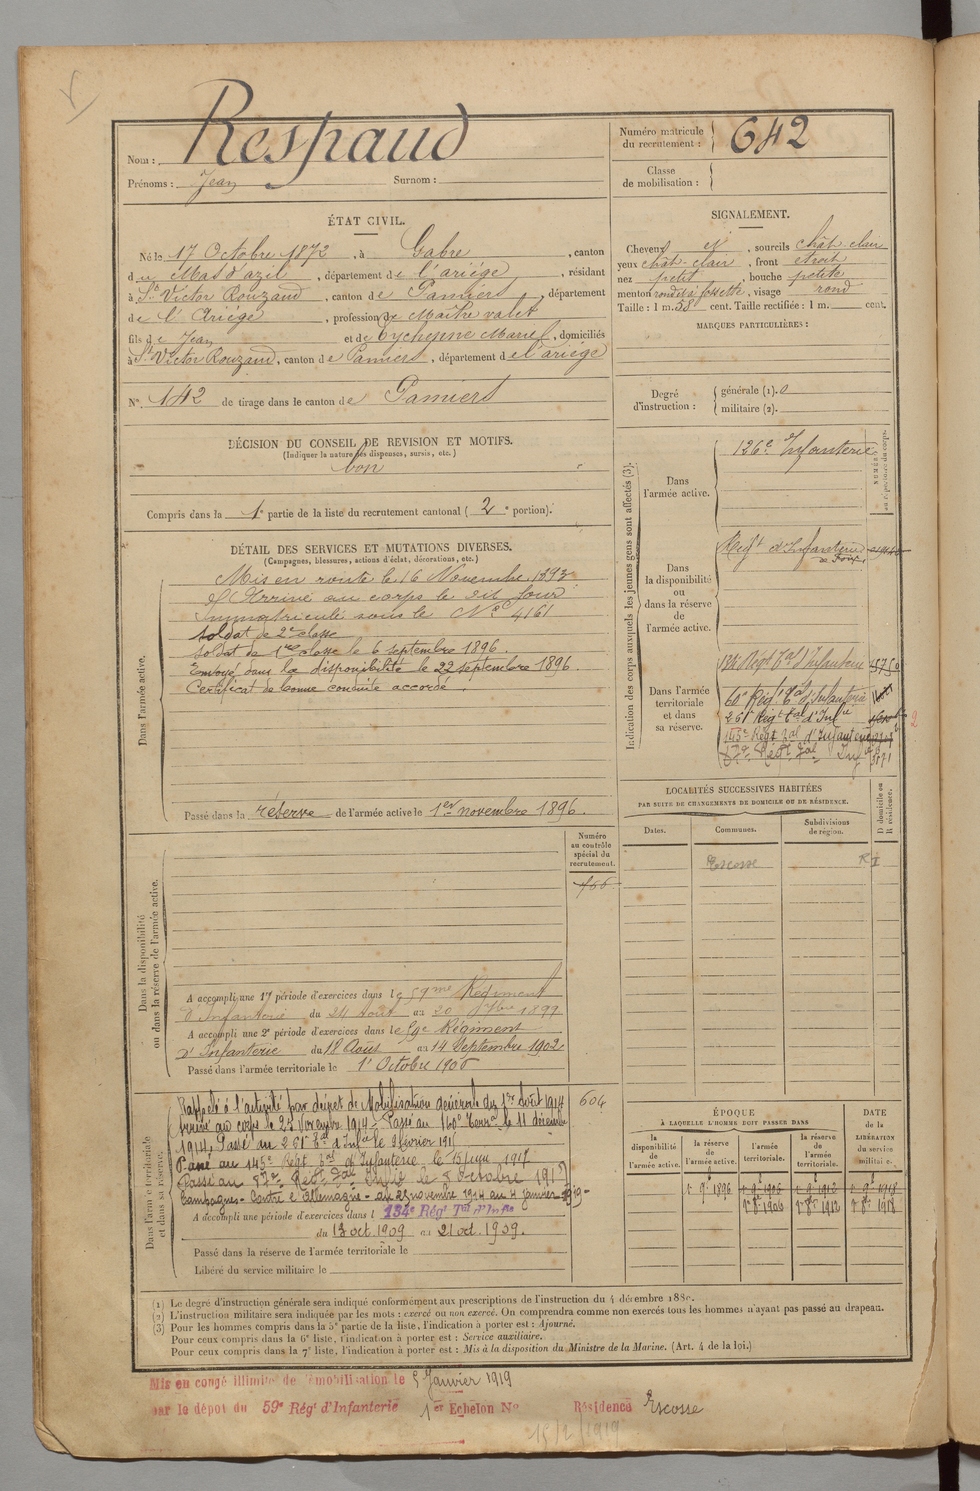 Nom : Respaud
Prénoms : Jean Surnom :
Numéro matricule du recrutement : 642
Classe de mobilisation :
ÉTAT CIVIL.
Né le 17 Octobre 1872, à Gabre, canton
du Mas d'azil, département de l'ariége, résidant
à St Victor Rouzaud, canton de Pamiers, département
de l'Ariége, profession de Maître valet
fils de Jean et de Eychenne Marie, domiciliés
à St Victor Rouzaud, canton de Pamiers, département de l'ariége
N° 142 de tirage dans le canton de Pamiers
DÉCISION DU CONSEIL DE REVISION ET MOTIFS.
(Indiquer la nature des dispenses, sursis, etc.)
bon
Compris dans la 1e partie de la liste du recrutement cantonal (2e portion).
SIGNALEMENT.
Cheveux et, sourcils chât clair
yeux chât clair, front etroit
nez petit, bouche petite
menton rond à fossette, visage rond
Taille : 1 m. cent. Taille rectifiée : 1 m. cent.
MARQUES PARTICULIÈRES :
Degré d'instruction : générale (1). 0
militaire (2).
DÉTAIL DES SERVICES ET MUTATIONS DIVERSES.
(Campagnes, blessures, actions d'éclat, décorations, etc.)
Dans l'armée active.
Mis en route le 16 Novembre 1893
Arrivé au corps le dit jour
Immatriculé sous le N° 4161
Soldat de 2e classe
Soldat de 1re classe le 6 septembre 1896.
Envoyé dans la disponibilité le 22 septembre 1896.
Certificat de bonne conduite accordé.
Passé dans la réserve de l'armée active le 1er novembre 1896.
Indication des corps auxquels les jeunes gens sont affectés (3).
Dans l'armée active.
126e Infanterie
Dans la disponibilité ou dans la réserve de l'armée active.
Régt d'Infanterie de Foix
Dans l'armée territoriale et dans sa réserve.
Régt Tal d'Infanterie
60e Régt Tal d'Infanterie
261e Régt Tal d'Infie
145e Régt Tal d'Infanterie
Régt Tal Inf
LOCALITÉS SUCCESSIVES HABITÉES
PAR SUITE DE CHANGEMENTS DE DOMICILE OU DE RÉSIDENCE.
Dates. Communes. Subdivisions de région. D domicile ou R résidence.
Escosse
Numéro au contrôle spécial du recrutement.
Dans la disponibilité ou dans la réserve de l'armée active.
A accompli une 1re période d'exercices dans le 59me Régiment
d'Infanterie du 24 Août au 20 7bre 1899
A accompli une 2e période d'exercices dans le 59e Régiment
d'Infanterie du 18 Août au 14 Septembre 1902
Passé dans l'armée territoriale le 1r Octobre 1906
Dans l'armée territoriale et dans sa réserve.
Rappelé à l'activité par décret de Mobilisation générale du 1er Août 1914
604
Arrivé au corps le 23 Novembre 1914. Passé au 140e Terral le 11 décembre
1914. Passé au 261e Tal d'Infie le 9 février 191
Passé au 145e Régt Tal d'Infanterie le 15 juin 1917
Passé au Régt Tal Infie le 5 octobre 1917
Campagnes - Contre l'Allemagne - du 23 novembre 1914 au 4 janvier 1919 -
A accompli une période d'exercices dans l 134e Régt Tal d'Infie
du 13 oct. 1909 au 21 oct. 1909.
Passé dans la réserve de l'armée territoriale le
Libéré du service militaire le
ÉPOQUE
À LAQUELLE L'HOMME DOIT PASSER DANS
DATE de la LIBÉRATION du service militaire.
la disponibilité de l'armée active. la réserve de l'armée active. l'armée territoriale. la réserve de l'armée territoriale.
1r 9b 1896 1r 9b 1906 1r 9b 1912 1r 9b 1918
1r 8b 1906 1r 8b 1912 1r 8b 1918
(1) Le degré d'instruction générale sera indiqué conformément aux prescriptions de l'instruction du 4 décembre 1889.
(2) L'instruction militaire sera indiquée par les mots : exercé ou non exercé. On comprendra comme non exercés tous les hommes n'ayant pas passé au drapeau.
(3) Pour les hommes compris dans la 5e partie de la liste, l'indication à porter est : Ajourné.
Pour ceux compris dans la 6e liste, l'indication à porter est : Service auxiliaire.
Pour ceux compris dans la 7e liste, l'indication à porter est : Mis à la disposition du Ministre de la Marine. (Art. 4 de la loi.)
Mis en congé illimité de démobilisation le 5 Janvier 1919
par le dépot du 59e Régt d'Infanterie 1er Echelon N° Résidence Escosse
15/2/1919